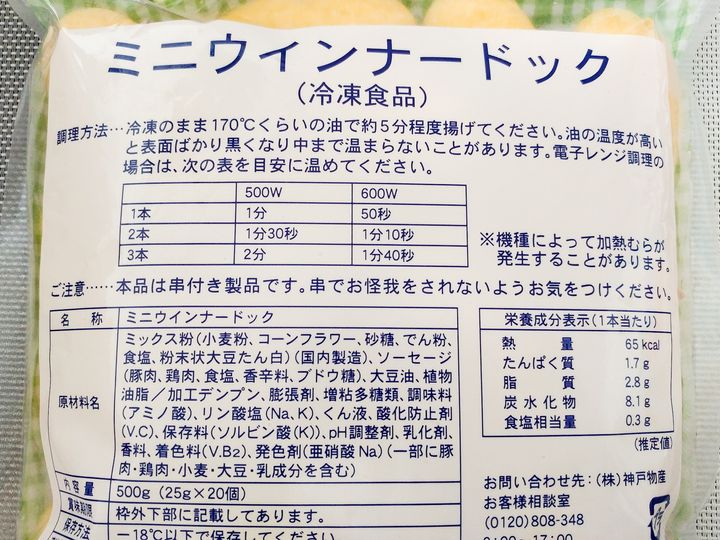 ミニウインナードック
(冷凍食品)
調理方法…冷凍のまま170℃くらいの油で約5分程度揚げてください。油の温度が高い
と表面ばかり黒くなり中まで温まらないことがあります。電子レンジ調理の
場合は、次の表を目安に温めてください。
500W 600W
1本 1分 50秒
2本 1分30秒 1分10秒
3本 2分 1分40秒
※機種によって加熱むらが
発生することがあります。
ご注意……本品は串付き製品です。串でお怪我をされないようお気をつけください。
名称 ミニウインナードック
原材料名
ミックス粉(小麦粉、コーンフラワー、砂糖、でん粉、
食塩、粉末状大豆たん白)(国内製造)、ソーセージ
(豚肉、鶏肉、食塩、香辛料、ブドウ糖)、大豆油、植物
油脂/加工デンプン、膨張剤、増粘多糖類、調味料
(アミノ酸)、リン酸塩(Na、K)、くん液、酸化防止剤
(V.C)、保存料(ソルビン酸(K))、pH調整剤、乳化剤、
香料、着色料(V.B2)、発色剤(亜硝酸Na)(一部に豚
肉・鶏肉・小麦・大豆・乳成分を含む)
内容量 500g(25g×20個)
賞味期限 枠外下部に記載してあります。
保存方法 −18℃以下で保存してください。
栄養成分表示(1本当たり)
熱量 65kcal
たんぱく質 1.7g
脂質 2.8g
炭水化物 8.1g
食塩相当量 0.3g
(推定値)
お問い合わせ先:(株)神戸物産
お客様相談室
(0120)808-348